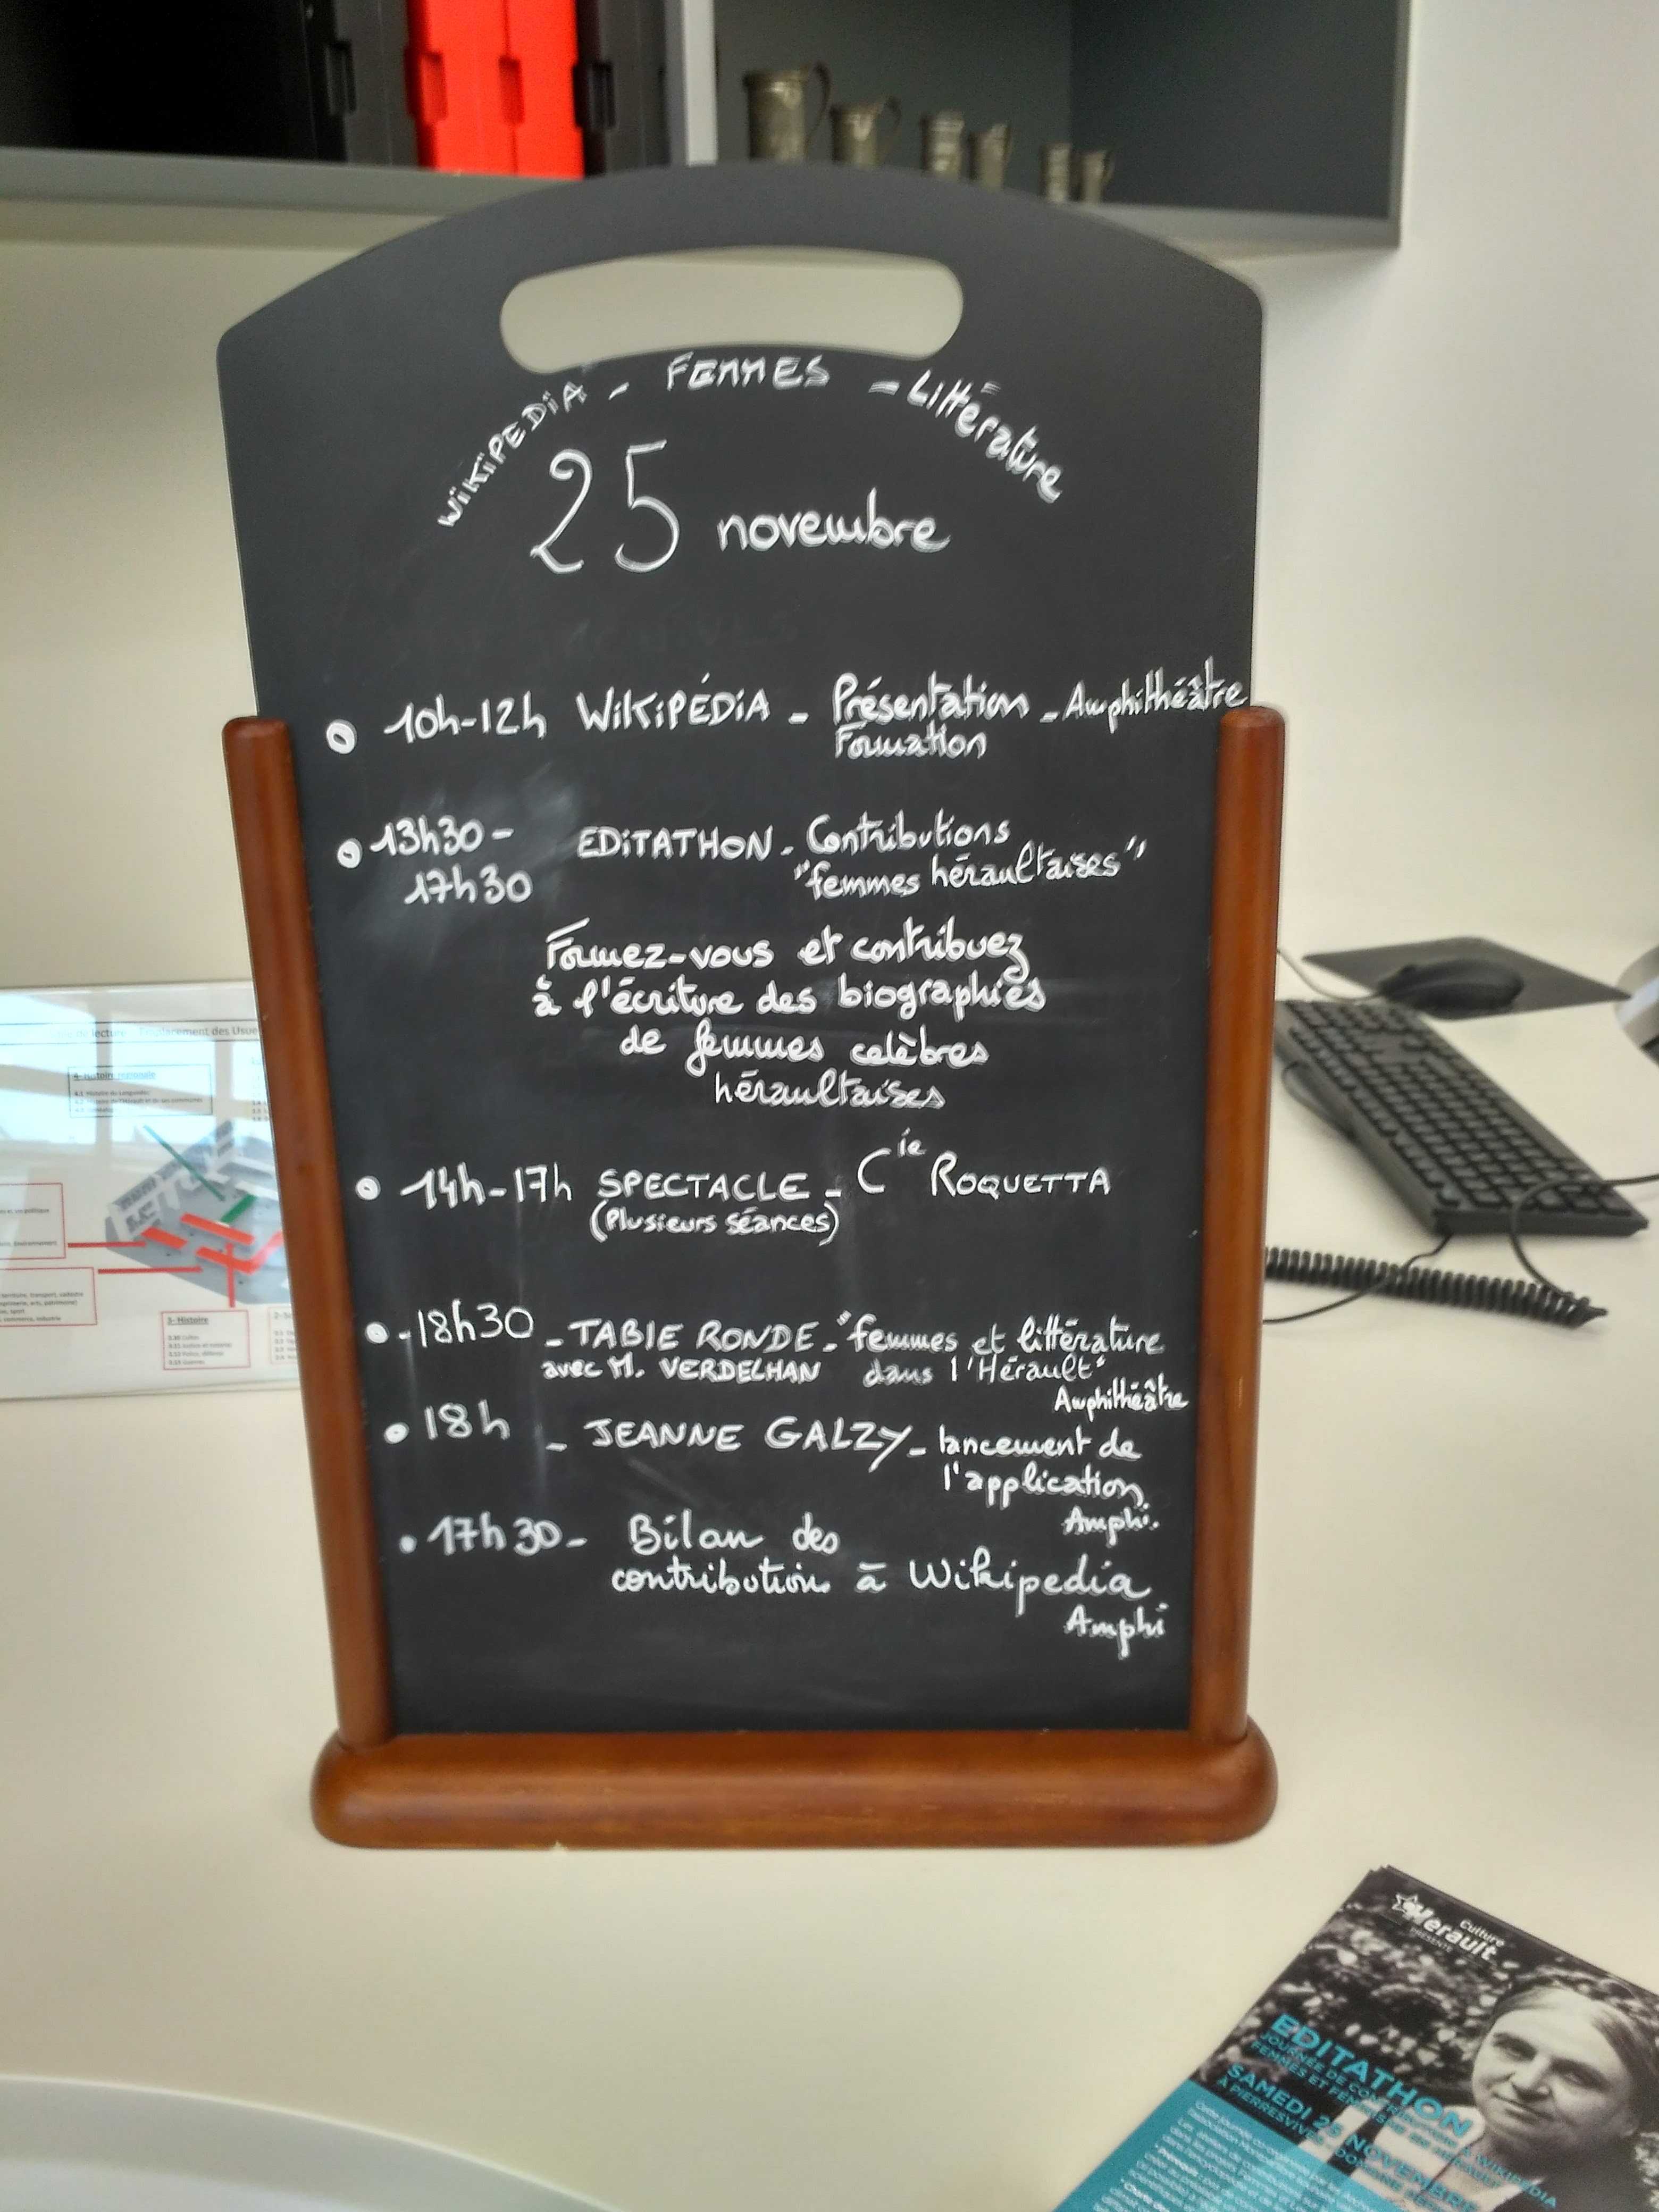 WIKIPEDIA - FEMMES - Littérature
25 novembre
10h-12h WIKIPÉDIA - Présentation - Amphithéâtre
Formation
13h30 - EDITATHON - Contributions
17h30 "femmes héraultaises"
Formez-vous et contribuez
à l'écriture des biographies
de femmes celèbres
héraultaises
14h-17h SPECTACLE - Cie ROQUETTA
(Plusieurs séances)
-18h30 - TABLE RONDE - "femmes et littérature
avec M. VERDELHAN dans l'Hérault"
Amphithéâtre
18h - JEANNE GALZY - lancement de
l'application
Amphi.
17h30 - Bilan des
contributions à Wikipedia
Amphi
Emplacement des
4- Histoire régionale
3- Histoire
Culture
Herault
PRÉSENTE
EDITATHON
JOURNÉE DE CONTRIBUTION À WIKIPEDIA
FEMMES ET FÉMINISME EN
SAMEDI 25 NOVEMBRE
À PIERRESVIVES